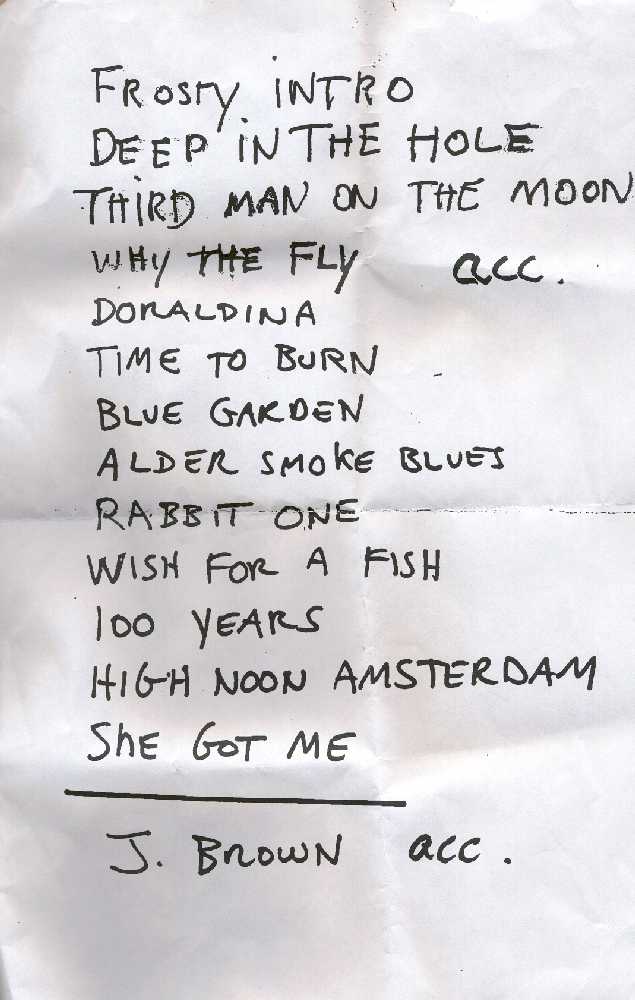 FROSTY INTRO
DEEP IN THE HOLE
THIRD MAN ON THE MOON
WHY THE FLY acc.
DORALDINA
TIME TO BURN
BLUE GARDEN
ALDER SMOKE BLUES
RABBIT ONE
WISH FOR A FISH
100 YEARS
HIGH NOON AMSTERDAM
SHE GOT ME
J. BROWN acc.